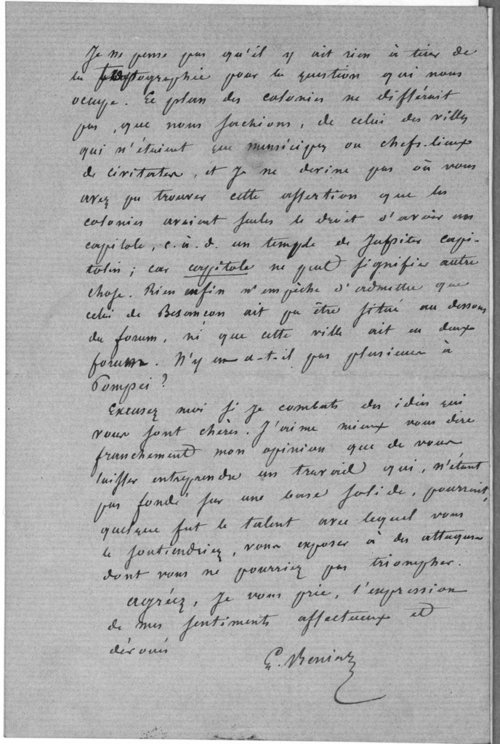 Je ne pense pas qu'il y ait rien à tirer de
la topographie pour la question qui nous
occupe. Le plan des colonies ne différait
pas, que nous sachions, de celui des villes
qui n'étaient que municipes ou chefs-lieux
de civitates, et je ne devine pas où vous
avez pu trouver cette assertion que les
colonies avaient seules le droit d'avoir un
capitole, c. à. d. un temple de Jupiter capi-
tolin ; car capitole ne peut signifier autre
chose. Rien enfin n'empêche d'admettre que
celui de Besançon ait pu être situé au dessous
du forum, ni que cette ville ait eu deux
forums. N'y en a-t-il pas plusieurs à
Pompei ?
Excusez moi si je combats des idées qui
vous sont chères. J'aime mieux vous dire
franchement mon opinion que de vous
laisser entreprendre un travail qui, n'étant
pas fondé sur une base solide, pourrait,
quelque fut le talent avec lequel vous
le soutiendriez, vous exposer à des attaques
dont vous ne pourriez pas triompher.
Agréez, je vous prie, l'expression
de mes sentiments affectueux et
dévoués